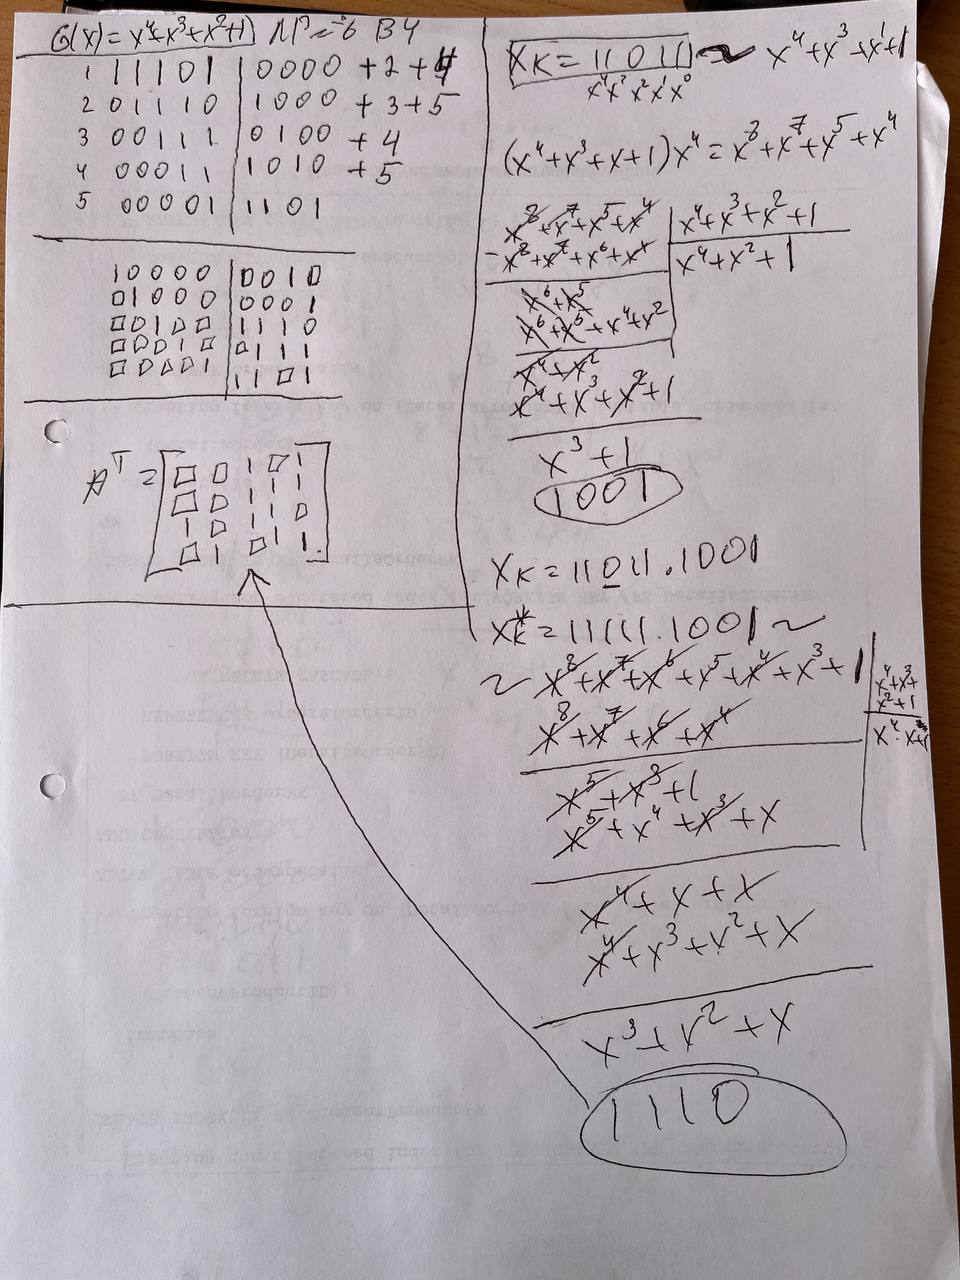 G(x) = x⁴+x³+x²+1) №=6 В4
1 1 1 1 0 1 | 0 0 0 0 + 2 + 4
2 0 1 1 1 0 | 1 0 0 0 + 3 + 5
3 0 0 1 1 1 | 0 1 0 0 + 4
4 0 0 0 1 1 | 1 0 1 0 + 5
5 0 0 0 0 1 | 1 1 0 1
1 0 0 0 0 | 0 0 1 0
0 1 0 0 0 | 0 0 0 1
0 0 1 0 0 | 1 1 1 0
0 0 0 1 0 | 0 1 1 1
0 0 0 0 1 | 1 1 0 1
A^T = [0 0 1 0 1
0 0 1 1 1
1 0 1 1 0
0 1 0 1 1]
Xк = 11011 ~ x⁴+x³+x¹+1
x⁴x³x²x¹x⁰
(x⁴+x³+x+1)x⁴ = x⁸+x⁷+x⁵+x⁴
x⁸+x⁷+x⁵+x⁴ | x⁴+x³+x²+1
- x⁸+x⁷+x⁶+x⁴ | x⁴+x²+1
x⁶+x⁵
x⁶+x⁵+x⁴+x²
x⁴+x²
x⁴+x³+x²+1
x³+1
1001
Xк = 11011.1001
Xк* = 11111.1001 ~
~ x⁸+x⁷+x⁶+x⁵+x⁴+x³+1 | x⁴+x³+
x²+1
x⁸+x⁷+x⁶+x⁴
x⁵+x³+1
x⁵+x⁴+x³+x
x⁴+x+x
x⁴+x³+x²+x
x³+x²+x
1110